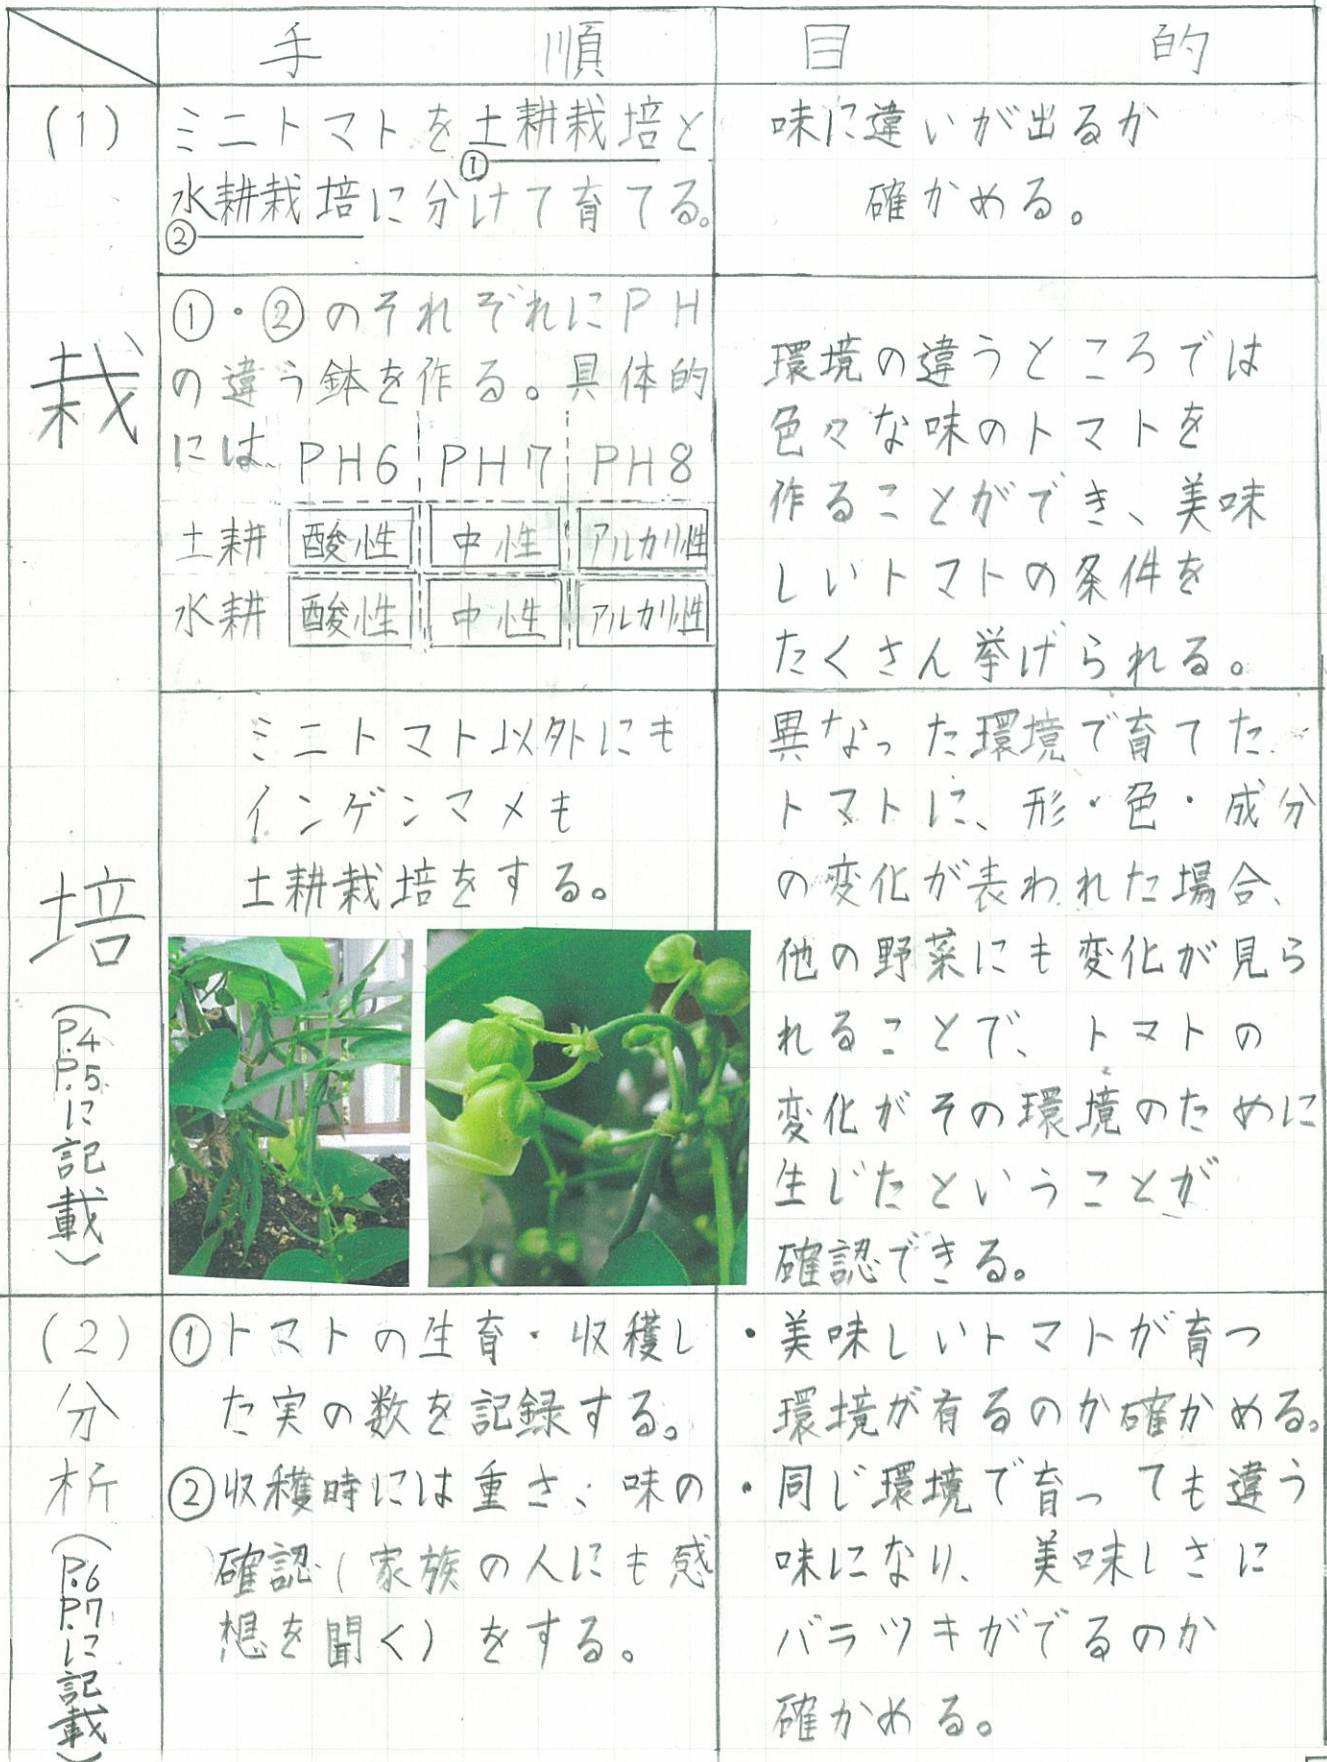 手順
目的
(1)
栽
培
(P.4
P.5
に記載)
ミニトマトを土耕栽培と
①
水耕栽培に分けて育てる。
②
味に違いが出るか
確かめる。
①・②のそれぞれにPH
の違う鉢を作る。具体的
には、PH6 PH7 PH8
土耕 酸性 中性 アルカリ性
水耕 酸性 中性 アルカリ性
環境の違うところでは
色々な味のトマトを
作ることができ、美味
しいトマトの条件を
たくさん挙げられる。
ミニトマト以外にも
インゲンマメも
土耕栽培をする。
異なった環境で育てた
トマトに、形・色・成分
の変化が表われた場合、
他の野菜にも変化が見ら
れることで、トマトの
変化がその環境のために
生じたということが
確認できる。
(2)
分
析
(P.6
P.7
に記載)
①トマトの生育・収穫し
た実の数を記録する。
②収穫時には重さ、味の
確認(家族の人にも感
想を聞く)をする。
・美味しいトマトが育つ
環境が有るのか確かめる。
・同じ環境で育っても違う
味になり、美味しさに
バラツキがでるのか
確かめる。